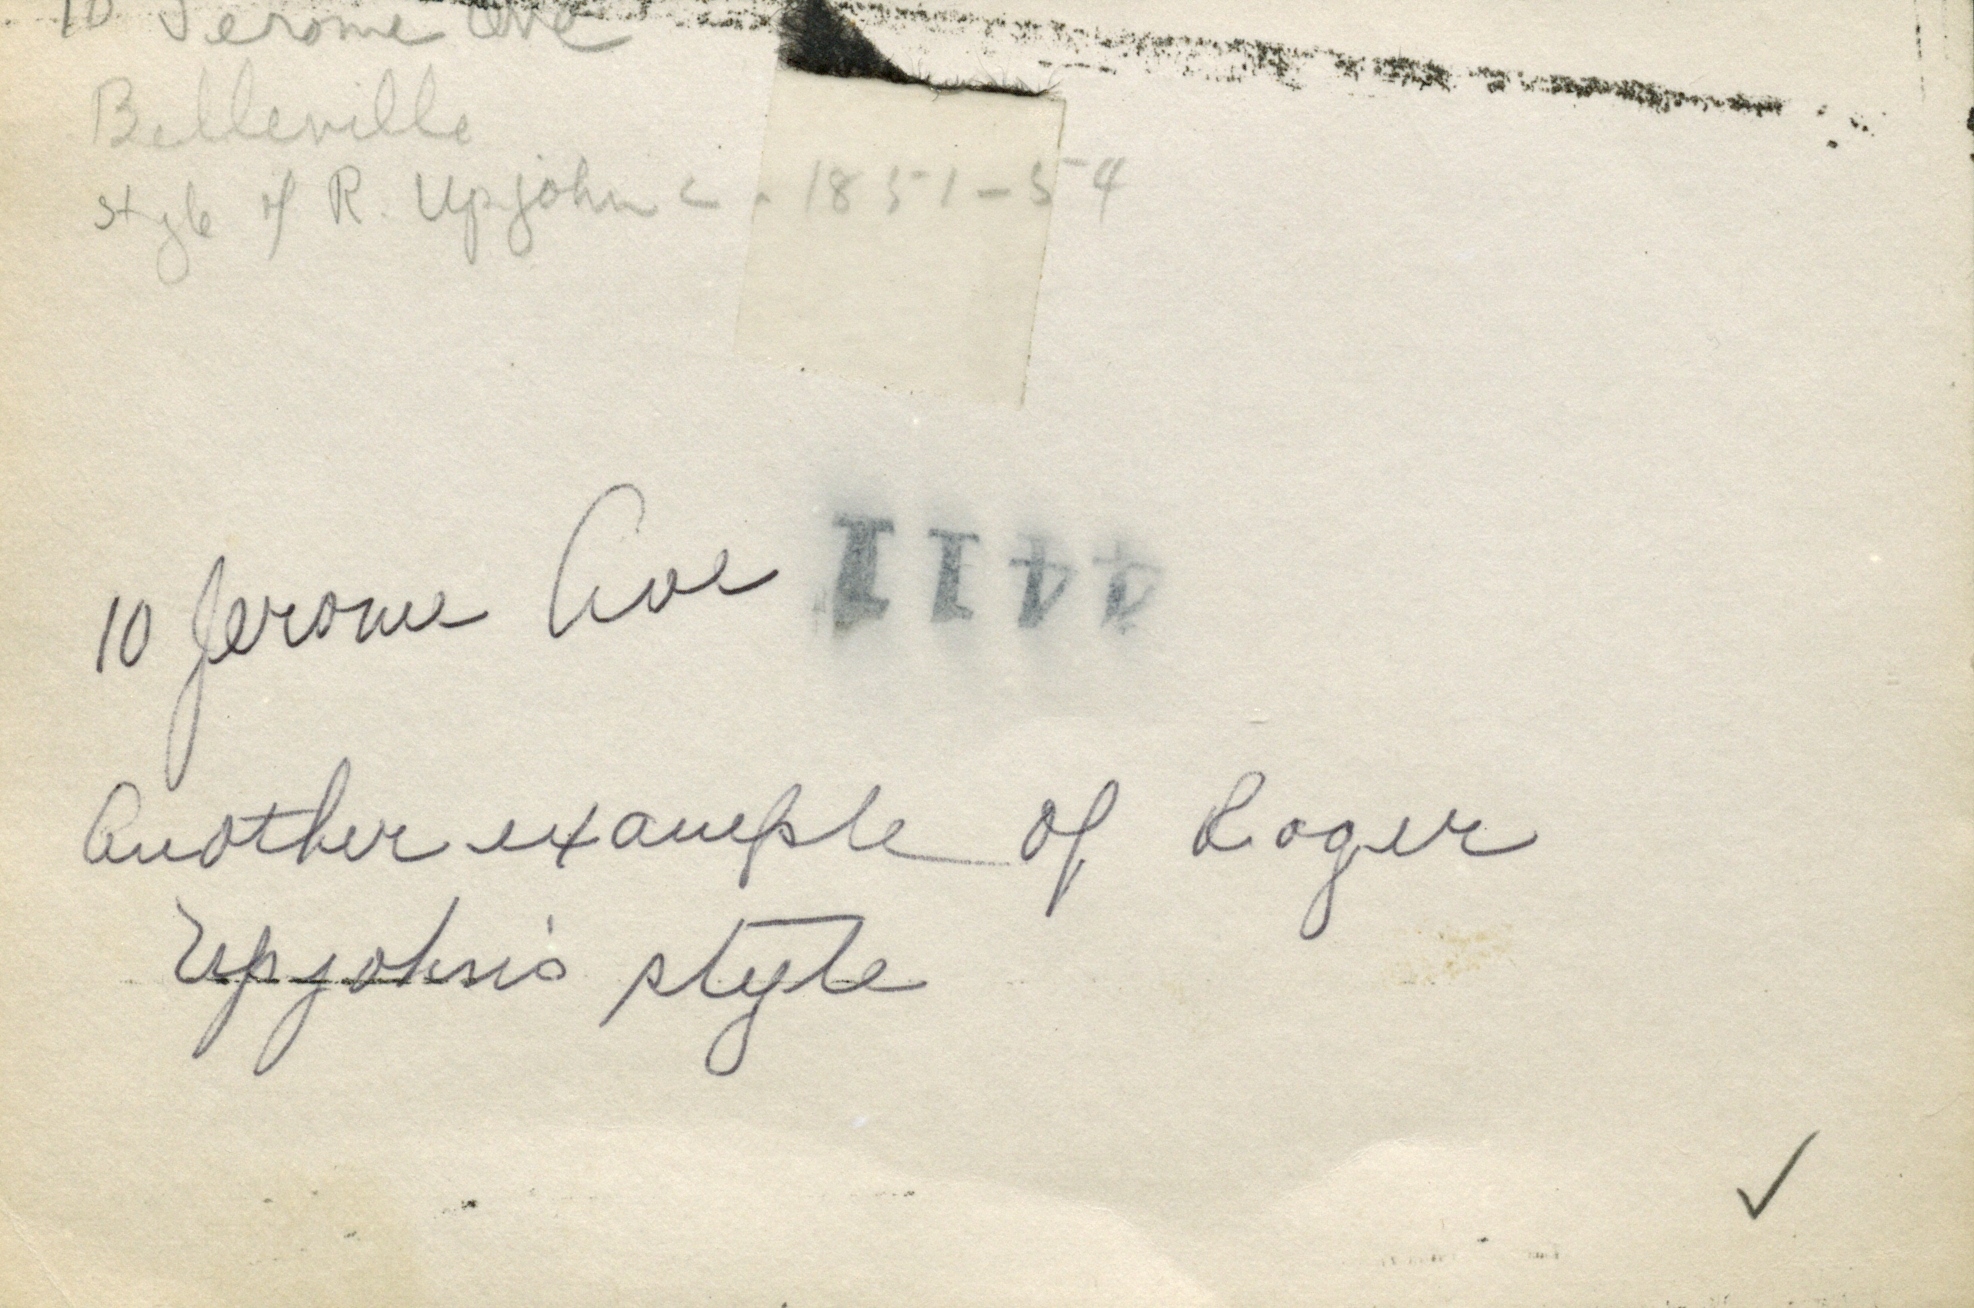 10 Jerome Ave
Belleville
style of R. Upjohn c. 1851-54
10 Jerome Ave
4411
Another example of Roger
Upjohn's style